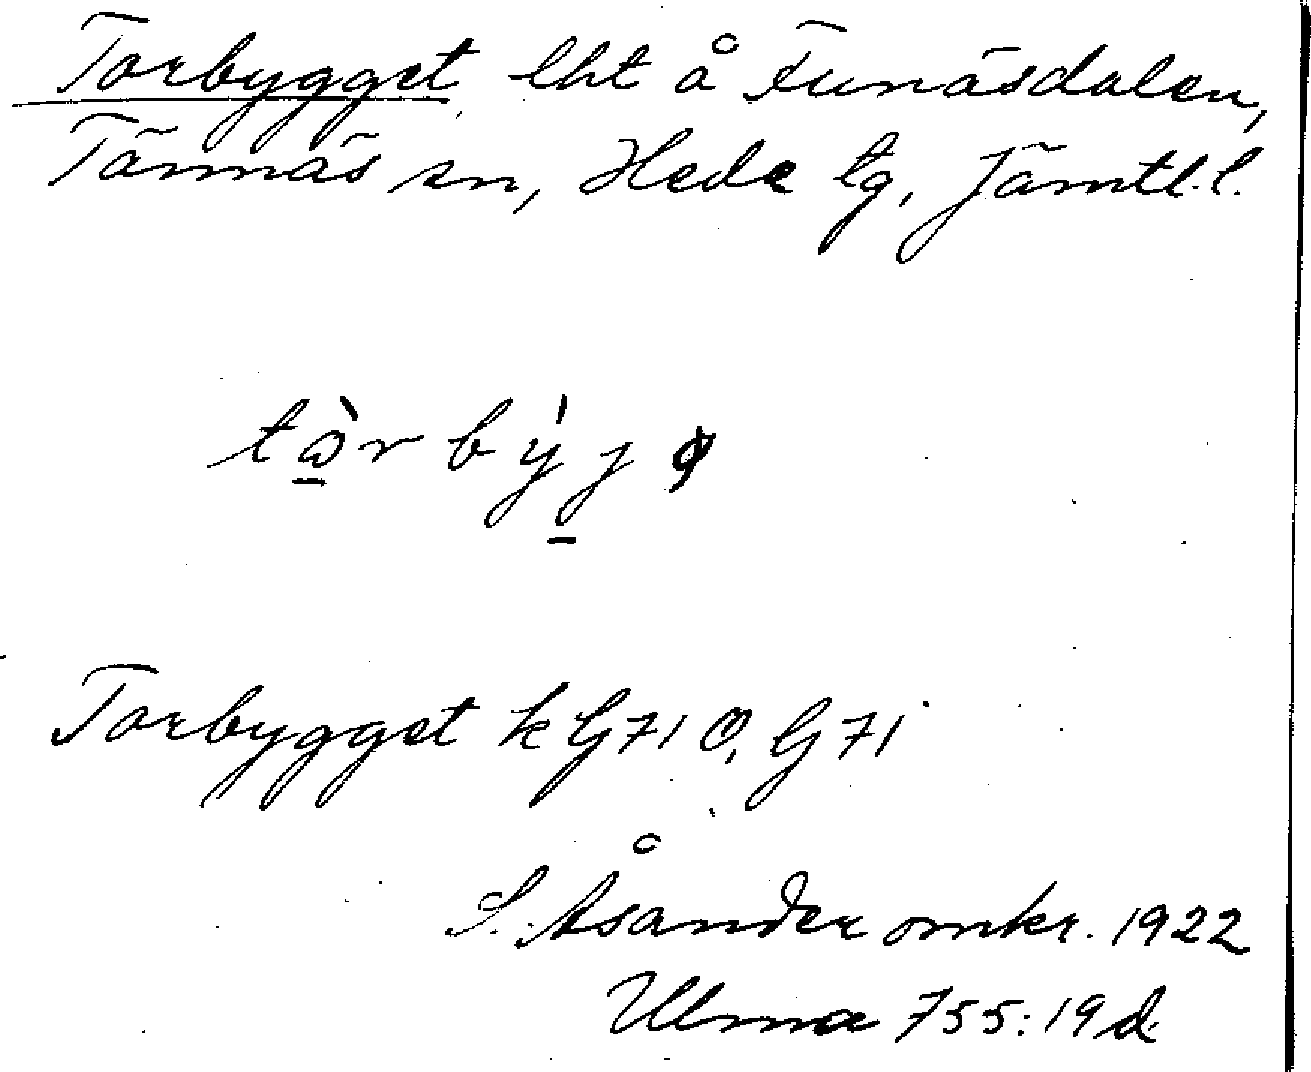 Torbygget lht å Funäsdalen,
Tännäs sn, Hede tg, Jämtl.l.
Torbygget k G71 O, G71
S. Åsander omkr. 1922
Ulma 755:19d.